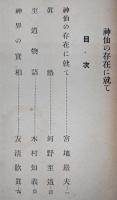 神仙の存在に就て
目・次
神仙の存在に就て……宮地嚴夫…一
眞誥……河野至道
至道物語……木村知義
神界の實相……友淸歡眞